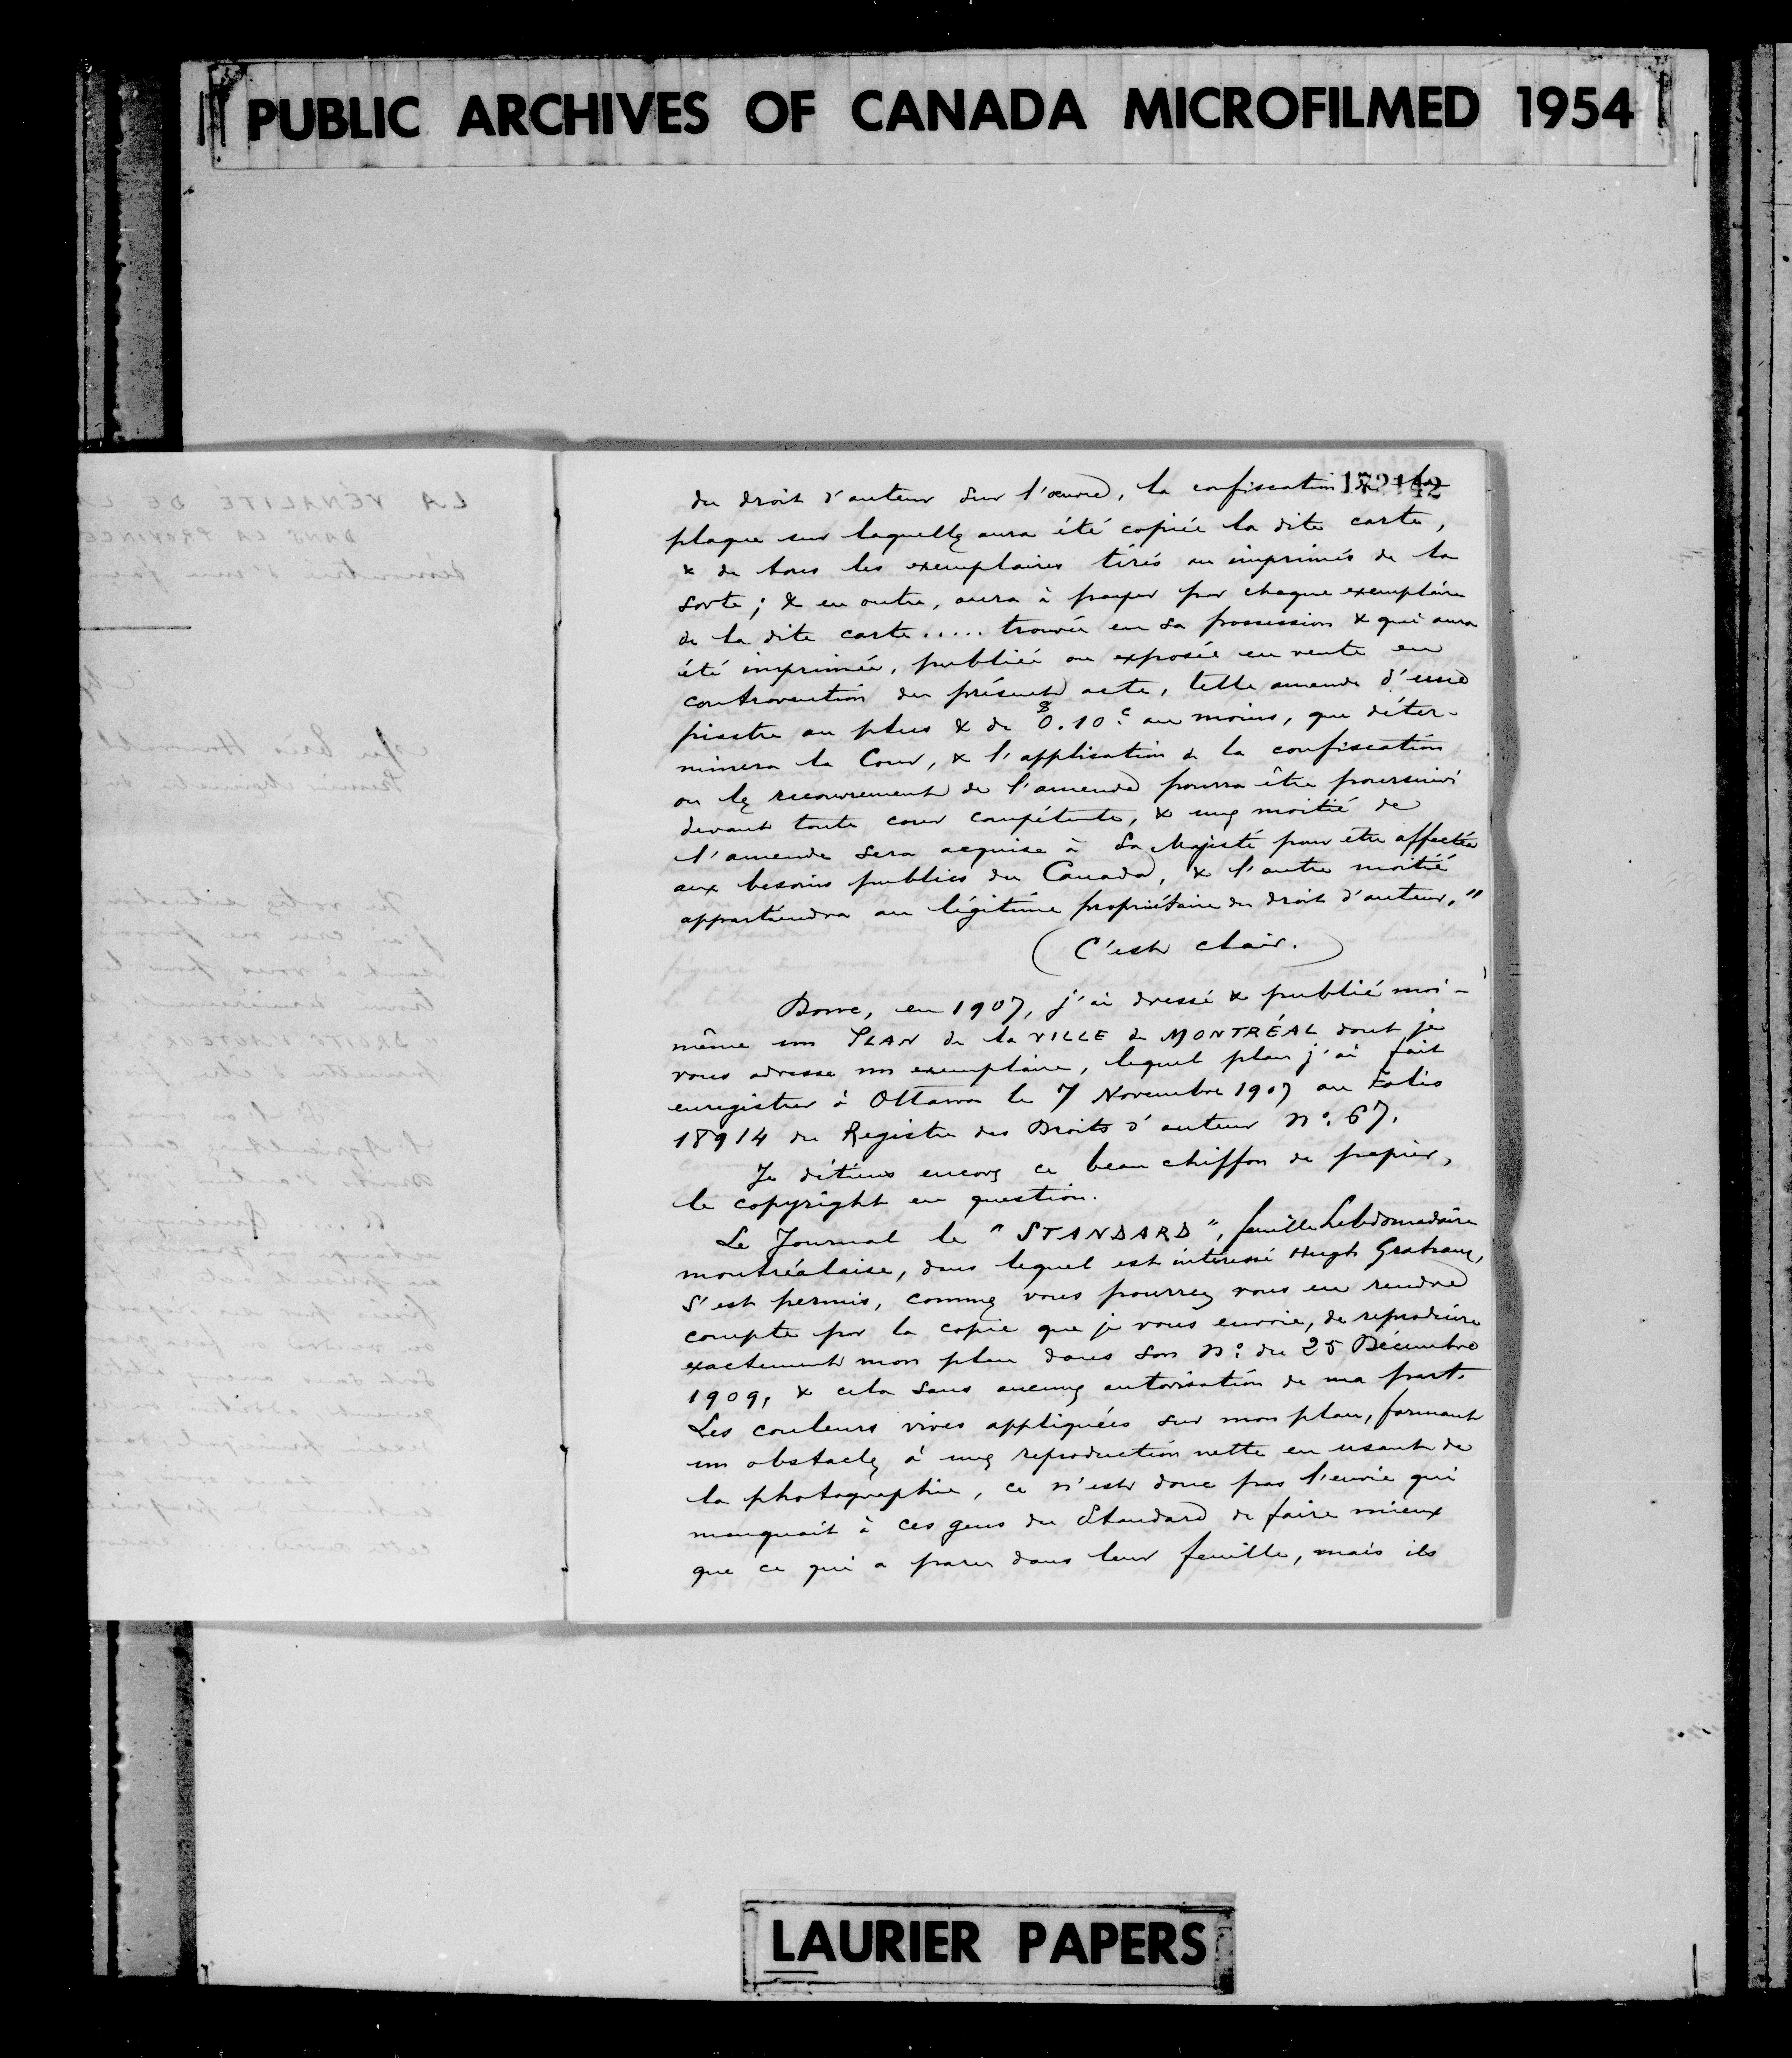 PUBLIC ARCHIVES OF CANADA MICROFILMED 1954
172142
du droit d'auteur sur l'œuvre, la confiscation de la
plaque sur laquelle aura été copiée la dite carte,
& de tous les exemplaires tirés ou imprimés de la
sorte; & en outre, aura à payer par chaque exemplaire
de la dite carte..... trouvée en sa possession & qui aura
été imprimée, publiée ou exposée en vente en
contravention du présent acte, telle amende d'une
piastre au plus & de $0.10c au moins, que déter-
minera la Cour, & l'application de la confiscation
ou le recouvrement de l'amende pourra être poursuivi
devant toute cour compétente, & une moitié de
l'amende sera acquise à Sa Majesté pour être affectée
aux besoins publics du Canada, & l'autre moitié
appartiendra au légitime propriétaire du droit d'auteur."
(C'est clair.)
Donc, en 1907, j'ai dressé & publié moi-
même un PLAN de la VILLE de MONTRÉAL dont je
vous adresse un exemplaire, lequel plan j'ai fait
enregistrer à Ottawa le 7 Novembre 1907 au Folio
18914 du Registre des Droits d'auteur No. 67.
Je détiens encore ce beau chiffon de papier,
le copyright en question.
Le Journal le "STANDARD", feuille hebdomadaire
montréalaise, dans lequel est intéressé Hugh Graham,
s'est permis, comme vous pourrez vous en rendre
compte par la copie que je vous envoie, de reproduire
exactement mon plan dans son No. du 25 Décembre
1909, & cela sans aucune autorisation de ma part.
Les couleurs vives appliquées sur mon plan, formant
un obstacle à une reproduction nette en usant de
la photographie, ce n'est donc pas l'envie qui
manquait à ces gens du Standard de faire mieux
que ce qui a paru dans leur feuille, mais ils
LAURIER PAPERS